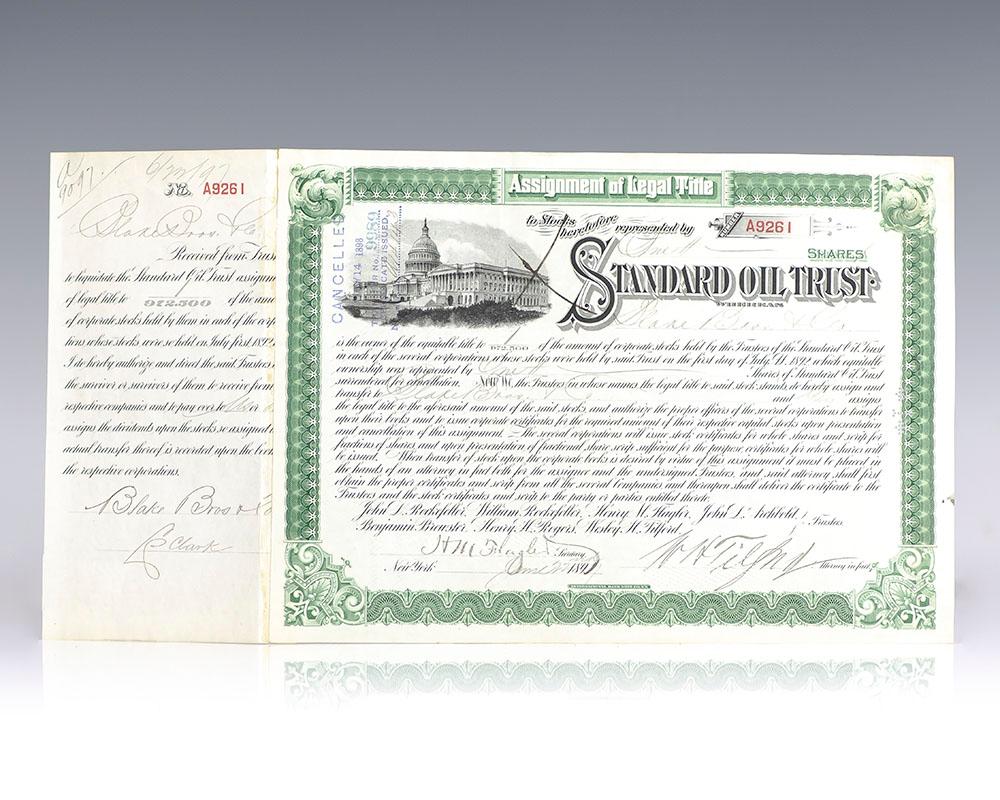 6/23/97
No. A9261
Blake Bros. & Co
Received from Trus
to liquidate the Standard Oil Trust assignm
of legal title to 972.500 of the amo
of corporate stocks held by them in each of the corp
tions whose stocks were so held on July first 1892
I do hereby authorize and direct the said Trustees
the survivor or survivors of them to receive from
respective companies and to pay over to or
assigns the dividends upon the stocks so assigned u
actual transfer thereof is recorded upon the book
the respective corporations.
Blake Bros & Co
Clark
Assignment of Legal Title
to Stocks heretofore represented by
No. A9261
One
SHARES
STANDARD OIL TRUST
WHEREAS
Blake Bros. & Co.
CANCELLED
14 1898
CATE ISSUED
is the owner of the equitable title to 972.500 of the amount of corporate stocks held by the Trustees of the Standard Oil Trust
in each of the several corporations whose stocks were held by said Trust on the first day of July 1892 which equitable
ownership was represented by One Shares of Standard Oil Trust
surrendered for cancellation. Now We, the Trustees in whose names the legal title to said stocks stands, do hereby assign and
transfer to Blake Bros. & Co and assigns
the legal title to the aforesaid amount of the said stocks and authorize the proper officers of the several corporations to transfer
upon their books and to issue corporate certificates for the required amount of their respective capital stocks upon presentation
and cancellation of this assignment. The several corporations will issue stock certificates for whole shares and scrip for
fractions of shares and upon presentation of fractional share scrip sufficient for the purpose certificates for whole shares will
be issued. When transfer of stock upon the corporate books is desired by virtue of this assignment it must be placed in
the hands of an attorney in fact both for the assignee and the undersigned Trustees, and said attorney shall first
obtain the proper certificates and scrip from all the several Companies and thereupon shall deliver the certificate to the
Trustees and the stock certificates and scrip to the party or parties entitled thereto.
John D. Rockefeller, William Rockefeller, Henry M. Flagler, John D. Archbold,
Benjamin Brewster, Henry H. Rogers, Wesley H. Tilford, Trustees.
H M Flagler Secretary
W H Tilford Attorney in fact
New York June 23 1897